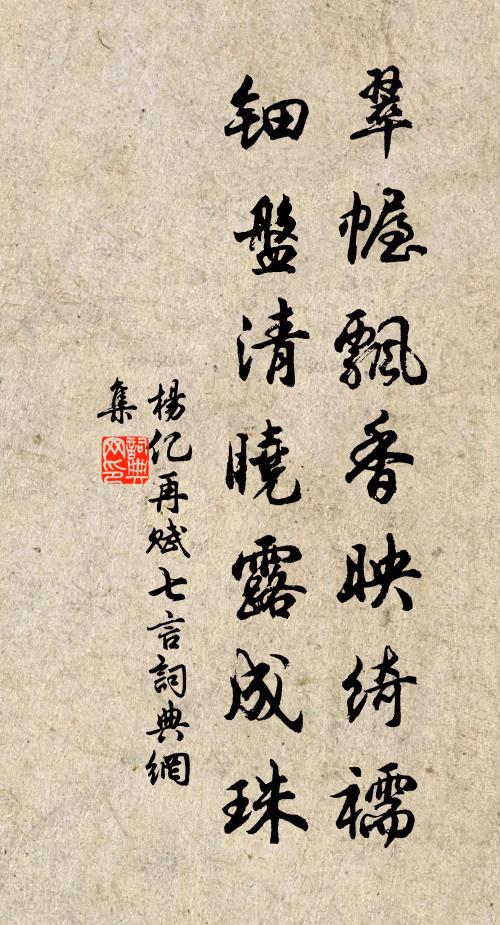 翠幄飄香映綺襦
鈿盤清曉露成珠
楊亿再賦七言詞典網
集
詞典
网印